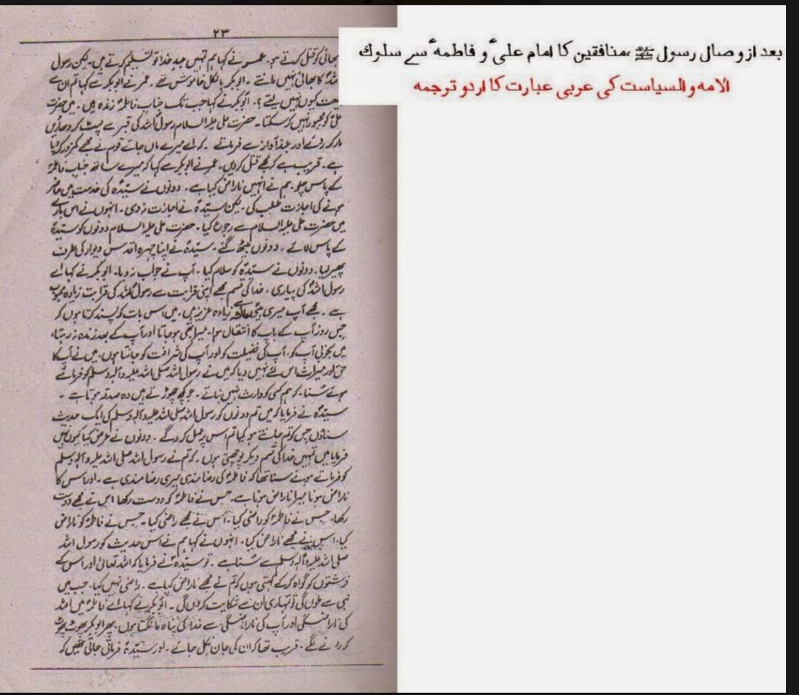 بعد از وصال رسول ﷺ ،منافقین کا امام علیؑ و فاطمہؑ سے سلوک
الامہ والسیاست کی عربی عبارت کا اردو ترجمہ
۲۳
بھائی کو قتل کرتے ہو۔ عمر نے کہا ہم تمہیں عبد خدا تو تسلیم کرتے ہیں۔ لیکن رسول
اللہ کا بھائی نہیں مانتے۔ ابوبکر بالکل خاموش تھے۔ عمر نے ابوبکر سے کہا تم ان سے
بیعت کیوں نہیں لیتے؟ ابوبکر نے کہا جب تک جناب فاطمہؑ زندہ ہیں۔ میں حضرت
علیؑ کو مجبور نہیں کر سکتا۔ حضرت علی علیہ السلام رسول اللہ کی قبر سے لپٹ کر دھاڑیں
مار کر روئے اور بلند آواز سے فرماتے۔ کہ اے میرے ماں جائے قوم نے مجھے کمزور کر دیا
ہے۔ قریب ہے کہ مجھے قتل کر دیں۔ عمر نے ابوبکر سے کہا کہ میرے ساتھ جناب فاطمہؑ
کے پاس چلو۔ ہم نے انہیں ناراض کیا ہے۔ دونوں نے سیدہؑ کی خدمت میں حاضر
ہونے کی اجازت طلب کی۔ لیکن سیدہؑ نے اجازت نہ دی۔ انہوں نے اس بارے
میں حضرت علی علیہ السلام سے رجوع کیا۔ حضرت علی علیہ السلام دونوں کو سیدہؑ
کے پاس لائے۔ دونوں بیٹھ گئے۔ سیدہؑ نے اپنا چہرہ اقدس دیوار کی طرف
پھیر لیا۔ دونوں نے سیدہؑ کو سلام کیا۔ آپ نے جواب نہ دیا۔ ابوبکر نے کہا اے
رسول اللہ کی پیاری۔ خدا کی قسم مجھے اپنی قرابت سے رسول اللہ کی قرابت زیادہ محبوب
ہے۔ مجھے آپ میری بیٹی عائشہ سے زیادہ عزیز ہیں۔ میں اس بات کو پسند کرتا ہوں کہ
جس روز آپ کے باپ کا انتقال ہوا۔ میرا بھی ہو جاتا اور آپ کے بعد زندہ نہ رہتا۔
میں بخوبی آپ کو، آپ کی فضیلت کو اور آپ کی شرافت کو جانتا ہوں۔ میں نے آپ کا
حق اور میراث اس لئے نہیں دیا کہ میں نے رسول اللہ صلی اللہ علیہ وآلہ وسلم کو فرماتے
ہوئے سنا۔ کہ ہم کسی کو وارث نہیں بناتے۔ جو کچھ چھوڑتے ہیں وہ صدقہ ہوتا ہے۔
سیدہؑ نے فرمایا کہ میں تم دونوں کو رسول اللہ صلی اللہ علیہ وآلہ وسلم کی ایک حدیث
سناؤں جس کو تم جانتے ہو کیا تم اس پر عمل کرو گے۔ دونوں نے عرض کیا کیوں نہیں
فرمایا میں تمہیں خدا کی قسم دیکر پوچھتی ہوں۔ کہ تم نے رسول اللہ صلی اللہ علیہ وآلہ وسلم
کو فرماتے ہوئے سنا تھا کہ فاطمہؑ کی رضا مندی میری رضا مندی ہے۔ اور اس کا
ناراض ہونا میرا ناراض ہونا ہے۔ جس نے فاطمہؑ کو دوست رکھا اس نے مجھے دوست
رکھا، جس نے فاطمہؑ کو راضی کیا، اس نے مجھے راضی کیا۔ جس نے فاطمہؑ کو ناراض
کیا۔ اس نے مجھے ناراض کیا۔ انہوں نے کہا ہم نے اس حدیث کو رسول اللہ
صلی اللہ علیہ وآلہ وسلم سے سنا ہے۔ تو سیدہؑ نے فرمایا کہ اللہ تعالیٰ اور اس کے
فرشتوں کو گواہ کر کے کہتی ہوں کہ تم نے مجھے ناراض کیا ہے۔ راضی نہیں کیا۔ جب میں
نبی سے ملوں گی تو تمہاری ان سے شکایت کروں گی۔ ابوبکر نے کہا اے فاطمہؑ میں اللہ
کی ناراضگی اور آپ کی ناراضگی سے خدا کی پناہ مانگتا ہوں۔ پھر ابوبکر پھوٹ پھوٹ
کر رونے لگے۔ قریب تھا کہ ان کی جان نکل جائے۔ اور سیدہؑ فرماتی جاتی تھیں کہ